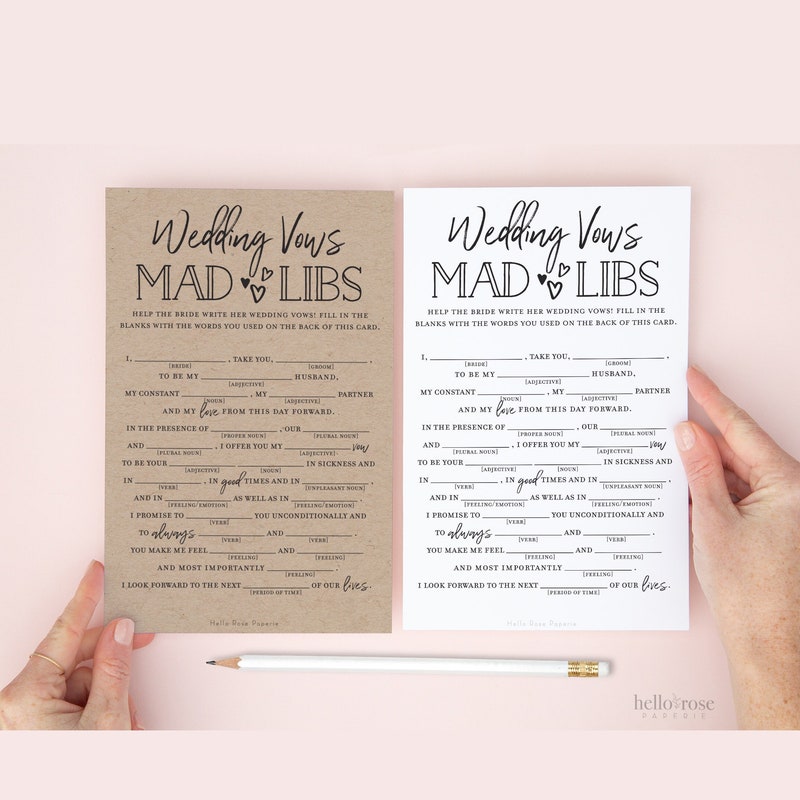 Wedding Vows
MAD LIBS
HELP THE BRIDE WRITE HER WEDDING VOWS! FILL IN THE
BLANKS WITH THE WORDS YOU USED ON THE BACK OF THIS CARD.
I, ____________ , TAKE YOU, ____________ ,
[BRIDE] [GROOM]
TO BE MY ____________ HUSBAND,
[ADJECTIVE]
MY CONSTANT __________ , MY __________ PARTNER
[NOUN] [ADJECTIVE]
AND MY love FROM THIS DAY FORWARD.
IN THE PRESENCE OF __________ , OUR __________
[PROPER NOUN] [PLURAL NOUN]
AND __________ , I OFFER YOU MY __________ vow
[PLURAL NOUN] [ADJECTIVE]
TO BE YOUR __________ __________ IN SICKNESS AND
[ADJECTIVE] [NOUN]
IN __________ , IN good TIMES AND IN __________ ,
[VERB] [UNPLEASANT NOUN]
AND IN __________ AS WELL AS IN __________ .
[FEELING/EMOTION] [FEELING/EMOTION]
I PROMISE TO __________ YOU UNCONDITIONALLY AND
[VERB]
TO always __________ AND __________ .
[VERB] [VERB]
YOU MAKE ME FEEL __________ AND __________
[FEELING] [FEELING]
AND MOST IMPORTANTLY __________ .
[FEELING]
I LOOK FORWARD TO THE NEXT __________ OF OUR lives.
[PERIOD OF TIME]
Hello Rose Paperie
Wedding Vows
MAD LIBS
HELP THE BRIDE WRITE HER WEDDING VOWS! FILL IN THE
BLANKS WITH THE WORDS YOU USED ON THE BACK OF THIS CARD.
I, ____________ , TAKE YOU, ____________ ,
[BRIDE] [GROOM]
TO BE MY ____________ HUSBAND,
[ADJECTIVE]
MY CONSTANT __________ , MY __________ PARTNER
[NOUN] [ADJECTIVE]
AND MY love FROM THIS DAY FORWARD.
IN THE PRESENCE OF __________ , OUR __________
[PROPER NOUN] [PLURAL NOUN]
AND __________ , I OFFER YOU MY __________ vow
[PLURAL NOUN] [ADJECTIVE]
TO BE YOUR __________ __________ IN SICKNESS AND
[ADJECTIVE] [NOUN]
IN __________ , IN good TIMES AND IN __________ ,
[VERB] [UNPLEASANT NOUN]
AND IN __________ AS WELL AS IN __________ .
[FEELING/EMOTION] [FEELING/EMOTION]
I PROMISE TO __________ YOU UNCONDITIONALLY AND
[VERB]
TO always __________ AND __________ .
[VERB] [VERB]
YOU MAKE ME FEEL __________ AND __________
[FEELING] [FEELING]
AND MOST IMPORTANTLY __________ .
[FEELING]
I LOOK FORWARD TO THE NEXT __________ OF OUR lives.
[PERIOD OF TIME]
Hello Rose Paperie
hello rose
PAPERIE